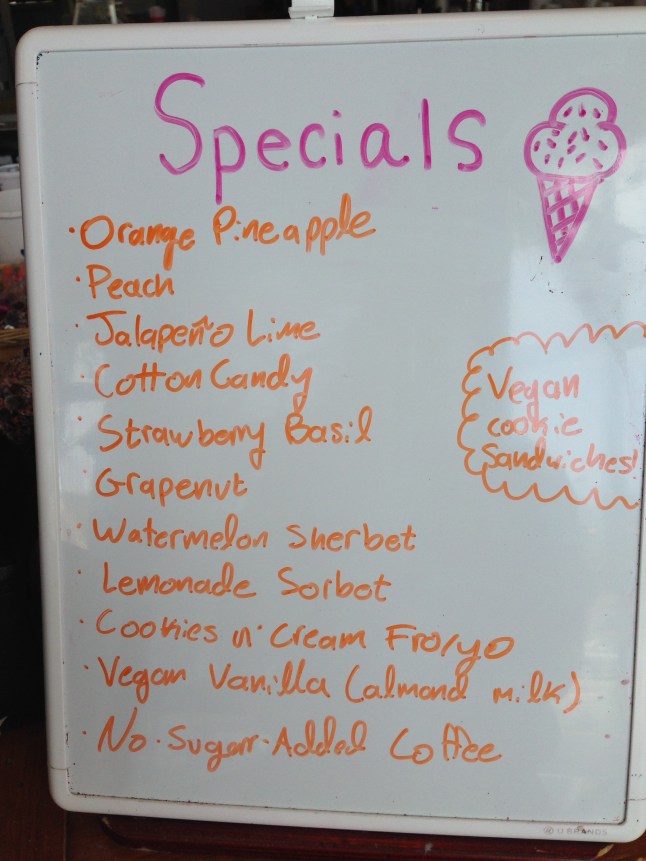 Specials
· Orange Pineapple
· Peach
· Jalapeño Lime
· Cotton Candy
· Strawberry Basil
· Grapenut
· Watermelon Sherbet
· Lemonade Sorbot
· Cookies n' Cream Fro/yo
· Vegan Vanilla (almond milk)
· No·Sugar·Added Coffee
Vegan
cookie
Sandwiches!
U BRANDS